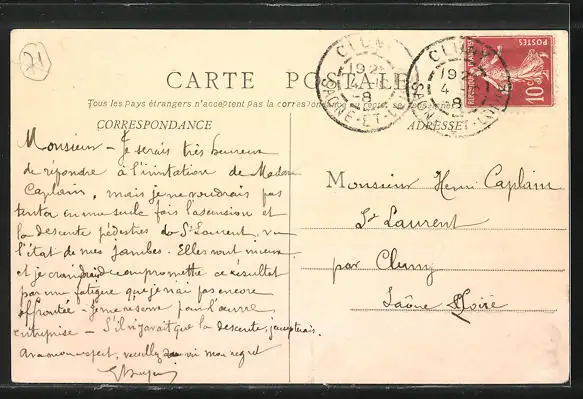 21
CARTE POSTALE
Tous les pays étrangers n'acceptent pas la correspondance au recto
CORRESPONDANCE
ADRESSE
CLUNY
19
4 -8
SAONE-ET-LOIRE
CLUNY
19
4 -8
SAONE-ET-LOIRE
POSTES
10
Monsieur - Je serais très heureux
de répondre à l'invitation de Madame
Caplain, mais je ne voudrais pas
tenter en une seule fois l'ascension et
la descente pédestres de St Laurent, vu
l'état de mes jambes. Elles vont mieux
et je craindrais de compromettre ce résultat
par une fatigue que je n'ai pas encore
affrontée - Je me réserve pour l'œuvre
entreprise - S'il n'y avait que la descente, j'accepterais.
Avec mon respect, veuillez mon regret
Monsieur Henri Caplain
St Laurent
par Cluny
Saône & Loire